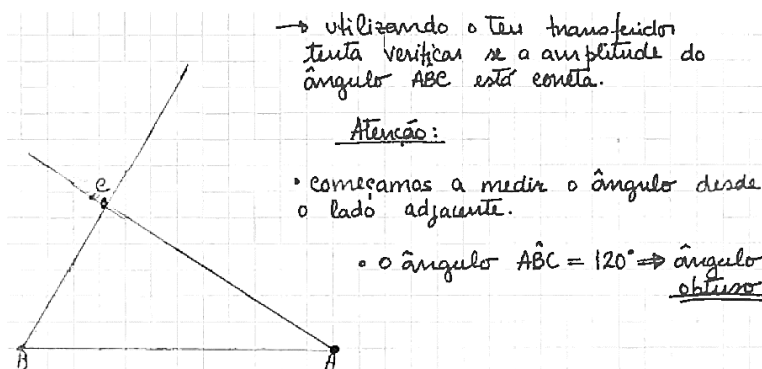 → utilizando o teu transferidor
tenta verificar se a amplitude do
ângulo ABC está correta.
Atenção:
• começamos a medir o ângulo desde
o lado adjacente.
• o ângulo AB̂C = 120° ⇒ ângulo
obtuso
C
B
A